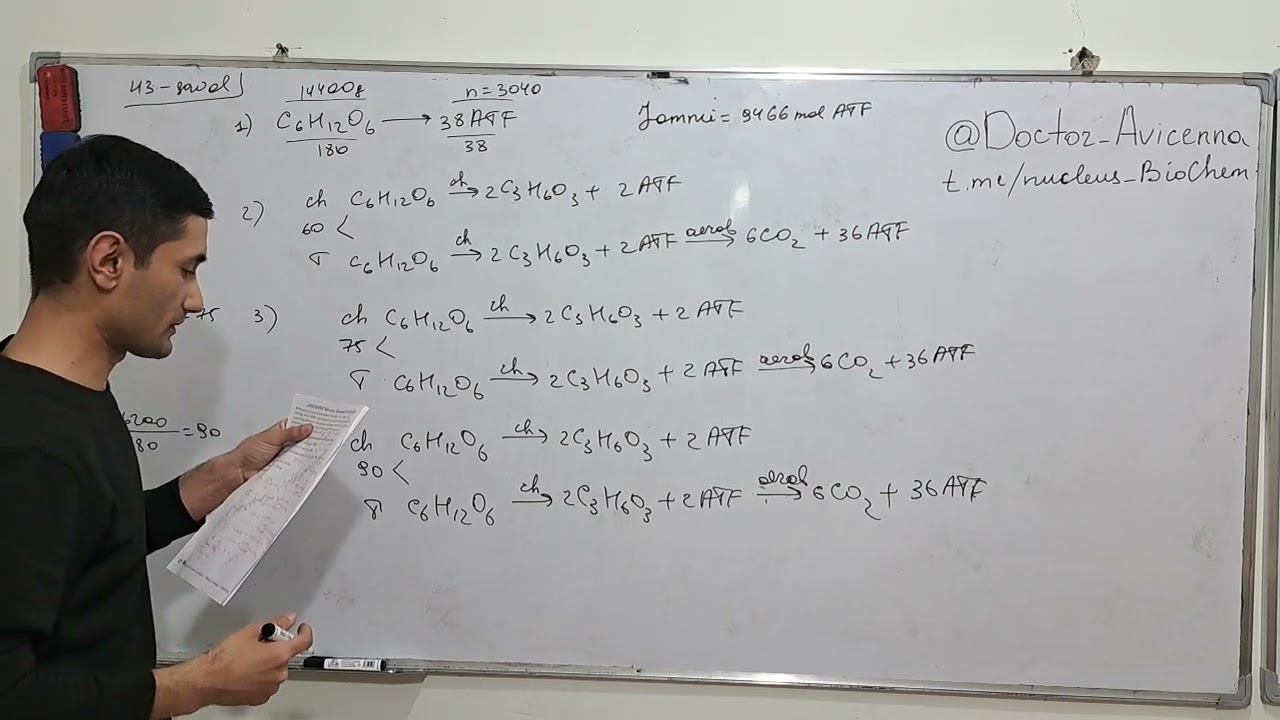 43-savol
14400g n=3040
1) C6H12O6 → 38ATF Jammi = 9466 mol ATF
180 38
@Doctor_Avicenna
t.me/nucleus_BioChem
2) ch C6H12O6 ch→ 2C3H6O3 + 2ATF
60 <
T C6H12O6 ch→ 2C3H6O3 + 2ATF aerob→ 6CO2 + 36ATF
=75 3) ch C6H12O6 ch→ 2C3H6O3 + 2ATF
75 <
T C6H12O6 ch→ 2C3H6O3 + 2ATF aerob→ 6CO2 + 36ATF
6200
80 =90
ch C6H12O6 ch→ 2C3H6O3 + 2ATF
90 <
T C6H12O6 ch→ 2C3H6O3 + 2ATF aerob→ 6CO2 + 36ATF